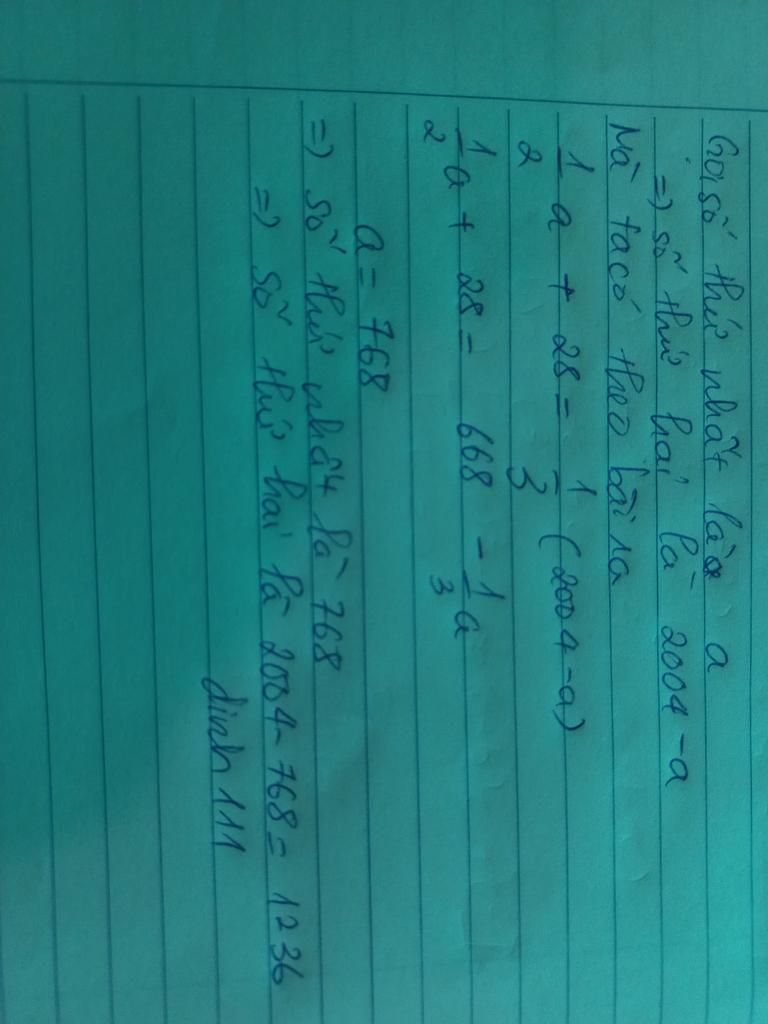 Gọi số thứ nhất là a
=) số thứ hai là 2004 - a
Mà ta có theo bài ra
1/2 a + 28 = 1/3 (2004 - a)
1/2 a + 28 = 668 - 1/3 a
a = 768
=) số thứ nhất là 768
=) số thứ hai là 2004 - 768 = 1236
dinh 111